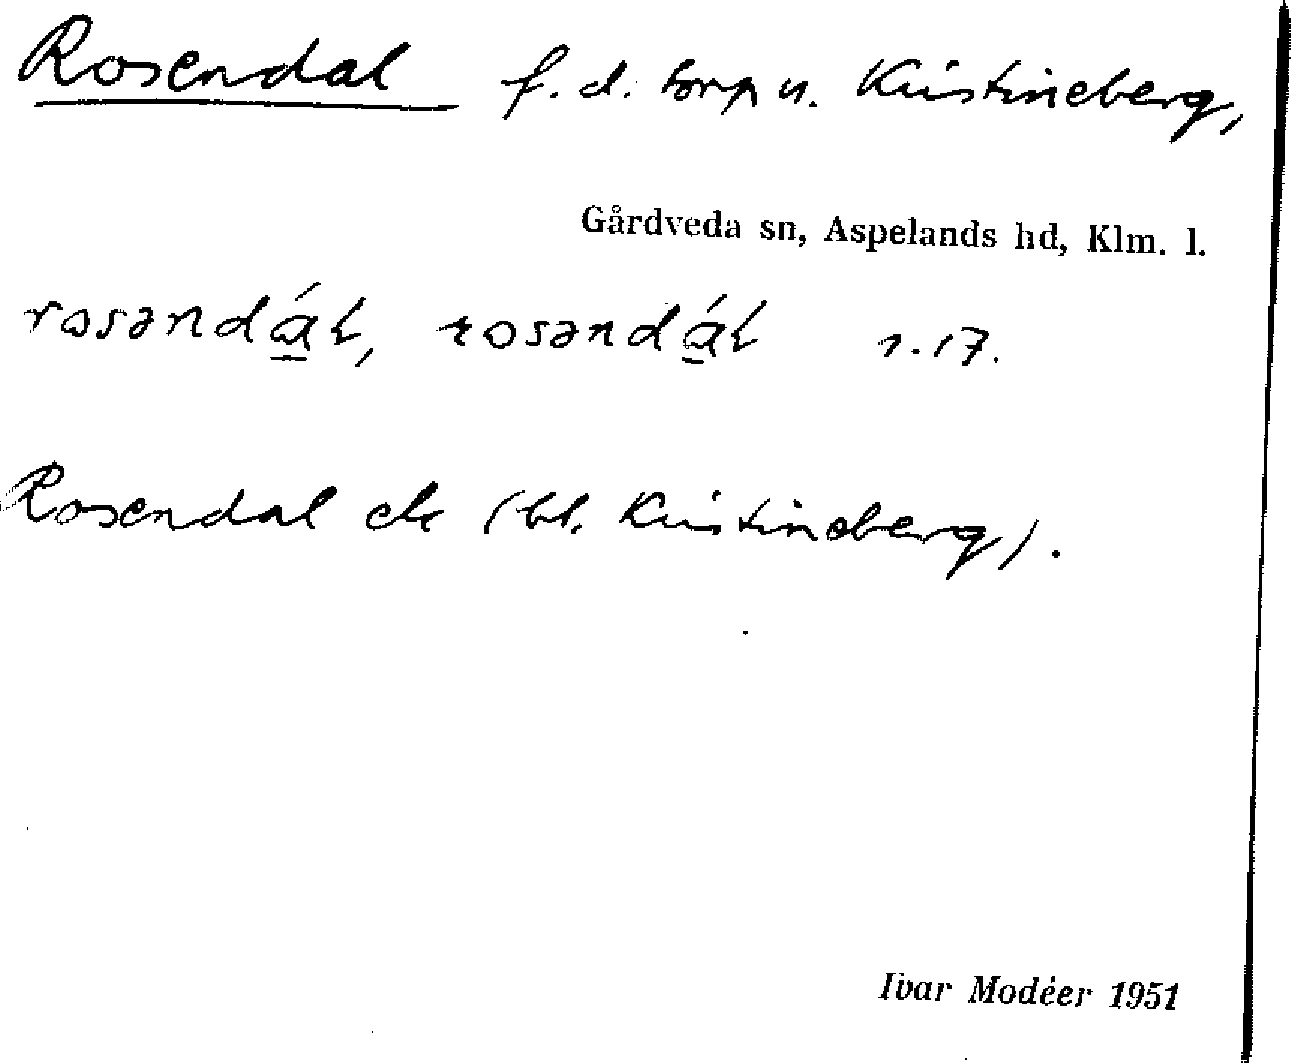 Rosendal f.d. torp u. Kristineberg,
Gårdveda sn, Aspelands hd, Klm. l.
rosəndál, rosəndál 1.17.
Rosendal ek (bl. Kristineberg).
Ivar Modéer 1951